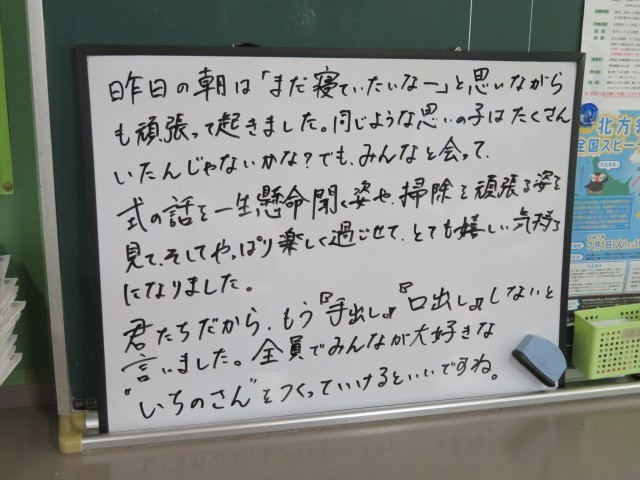 昨日の朝は「まだ寝ていたいなー」と思いながら
も頑張って起きました。同じような思いの子はたくさん
いたんじゃないかな？でも、みんなと会って、
式の話を一生懸命聞く姿や、掃除を頑張る姿を
見て、そしてやっぱり楽しく過ごせて、とても嬉しい気持ち
になりました。
君たちだから、もう『手出し』『口出し』しないと
言いました。全員でみんなが大好きな
"いちのさん"をつくっていけるといいですね。
北方
全国スピー